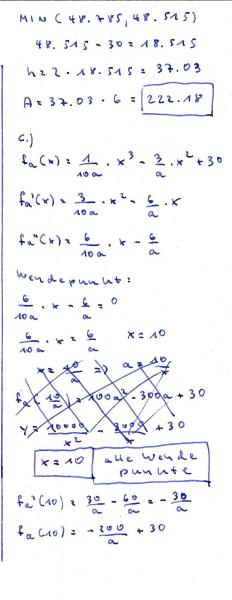 MIN (48.785, 48.515)
48.515 - 30 = 18.515
h = 2 · 18.515 = 37.03
A = 37.03 · 6 = 222.18
c.)
fa(x) = 1/10a · x³ - 3/a · x² + 30
fa'(x) = 3/10a · x² - 6/a · x
fa''(x) = 6/10a · x - 6/a
Wendepunkt:
6/10a · x - 6/a = 0
6/10a · x = 6/a x = 10
x = 10/a => a = 10/x
fa(10/a) = 100a² - 300a + 30
y = 10000/x² - 3000/x + 30
x = 10 alle Wende
punkte
fa'(10) = 30/a - 60/a = - 30/a
fa(10) = - 200/a + 30